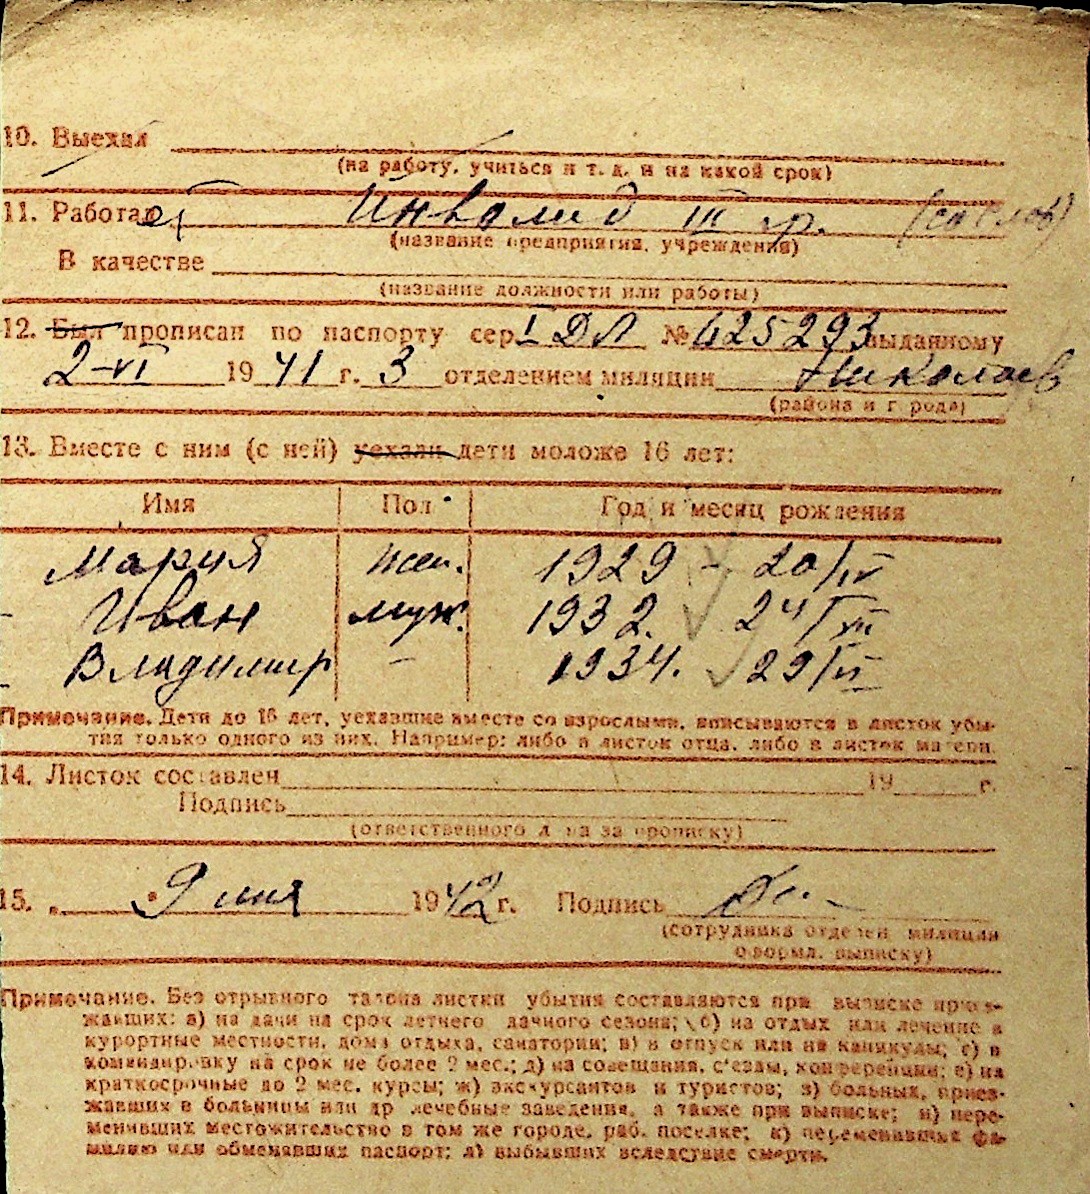 10. Выехал
(на работу, учиться и т. д. и на какой срок)
11. Работает Инвалид III гр. (со слов)
(название предприятия, учреждения)
В качестве
(название должности или работы)
12. Был прописан по паспорту сер. I ДЛ № 625293 выданному
2-VI 1941 г. 3 отделением милиции Николаев
(района и города)
13. Вместе с ним (с ней) уехали дети моложе 16 лет:
Имя Пол Год и месяц рождения
Мария жен. 1929 - 20/IV
Иван муж. 1932. 24/VIII
Владимир - 1934. 29/VI
Примечание. Дети до 16 лет, уехавшие вместе со взрослыми, вписываются в листок убы-
тия только одного из них. Например: либо в листок отца, либо в листок матери.
14. Листок составлен 19 г.
Подпись
(ответственного л на за прописку)
15. 9 мая 1942 г. Подпись
(сотрудника отделен милиции
оформл. выписку)
Примечание. Без отрывного талона листки убытия составляются при выписке приез-
жавших: а) на дачи на срок летнего дачного сезона; б) на отдых или лечение в
курортные местности, дома отдыха, санатории; в) в отпуск или на каникулы; г) в
командировку на срок не более 2 мес.; д) на совещания, с'езды, конференции; е) на
краткосрочные до 2 мес. курсы; ж) экскурсантов и туристов; з) больных, приез-
жавших в больницы или др лечебные заведения, а также при выписке; и) пере-
менивших местожительство в том же городе, раб. поселке; к) переменивших фа-
милию или обменявших паспорт; л) выбывших вследствие смерти.